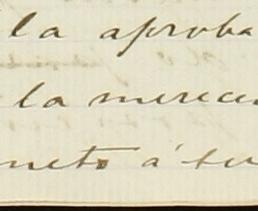 la aproba
la merecie
neto á su